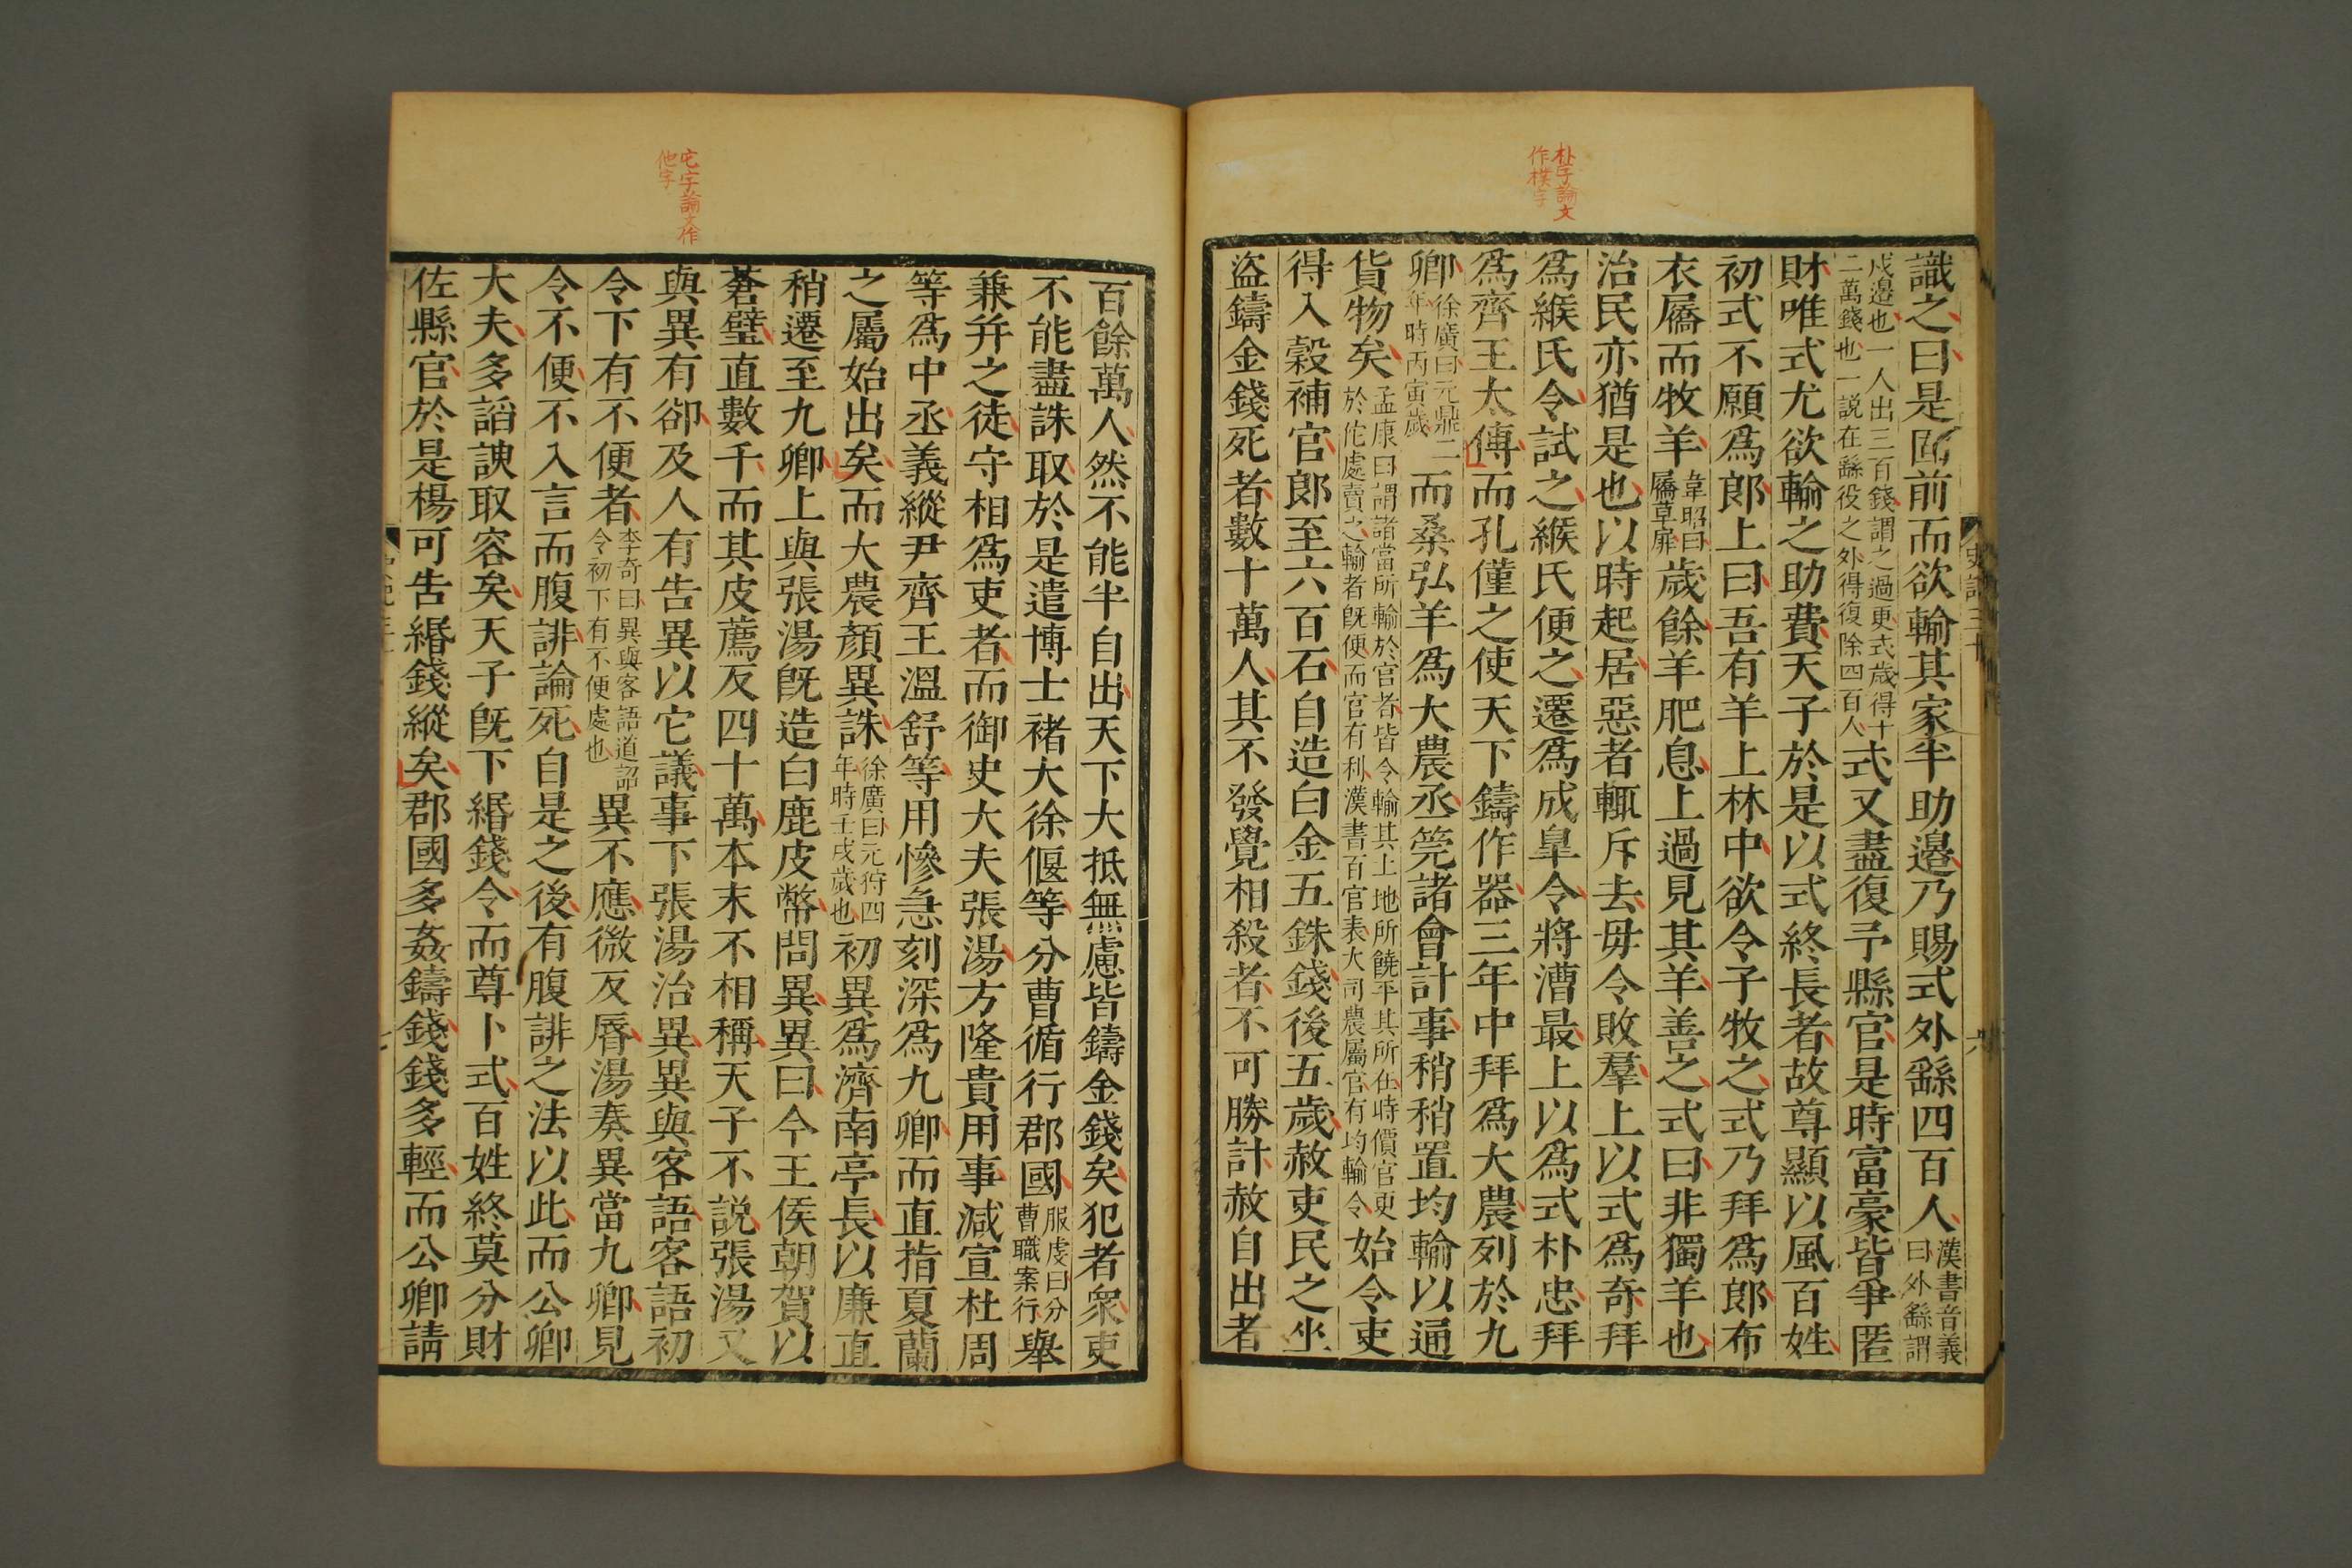 朴字論文
作樸字
識之曰是固前而欲輸其家半助邊乃賜式外繇四百人漢書音義曰外繇謂
戍邊也一人出三百錢謂之過更式歲得十二萬錢也一說在繇役之外得復除四百人式又盡復予縣官是時富豪皆爭匿
財唯式尤欲輸之助費天子於是以式終長者故尊顯以風百姓
初式不願爲郎上曰吾有羊上林中欲令子牧之式乃拜爲郎布
衣屩而牧羊韋昭曰屩草扉歲餘羊肥息上過見其羊善之式曰非獨羊也
治民亦猶是也以時起居惡者輒斥去毋令敗羣上以式爲奇拜
爲緱氏令試之緱氏便之遷爲成皐令將漕最上以爲式朴忠拜
爲齊王太傅而孔僅之使天下鑄作器三年中拜爲大農列於九
卿徐廣曰元鼎二年時丙寅歲而桑弘羊爲大農丞筦諸會計事稍稍置均輸以通
貨物矣孟康曰謂諸當所輸於官者皆令輸其土地所饒平其所在時價官更於佗處賣之輸者旣便而官有利漢書百官表大司農屬官有均輸令始令吏
得入穀補官郎至六百石自造白金五銖錢後五歲赦吏民之坐
盜鑄金錢死者數十萬人其不發覺相殺者不可勝計赦自出者
史記三十
六
它字論文作
他字
百餘萬人然不能半自出天下大抵無慮皆鑄金錢矣犯者衆吏
不能盡誅取於是遣博士褚大徐偃等分曹循行郡國服虔曰分曹職案行舉
兼幷之徒守相爲吏者而御史大夫張湯方隆貴用事減宣杜周
等爲中丞義縱尹齊王溫舒等用慘急刻深爲九卿而直指夏蘭
之屬始出矣而大農顏異誅徐廣曰元狩四年時壬戌歲也初異爲濟南亭長以廉直
稍遷至九卿上與張湯旣造白鹿皮幣問異異曰今王侯朝賀以
蒼璧直數千而其皮薦反四十萬本末不相稱天子不說張湯又
與異有卻及人有告異以它議事下張湯治異異與客語客語初
令下有不便者李奇曰異與客語道詔令初下有不便處也異不應微反脣湯奏異當九卿見
令不便不入言而腹誹論死自是之後有腹誹之法以此而公卿
大夫多諂諛取容矣天子旣下緡錢令而尊卜式百姓終莫分財
佐縣官於是楊可告緡錢縱矣郡國多姦鑄錢錢多輕而公卿請